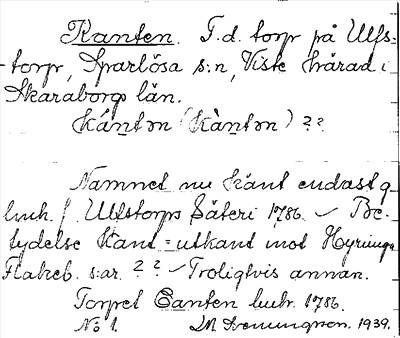 Kanten. F.d. torp på Ulfs-
torp, Sparlösa s:n, Viste härad i
Skaraborgs län.
Kántən (Kàntən) ??
Namnet nu känt endast g.
luh. f. Ulfstorps Säteri 1786. – Be-
tydelse Kant = utkant mot Hyringa
Flakeb. s:ar. ?? – Troligtvis annan.
Torpet Canten luhr. 1786.
No 1. 1939.